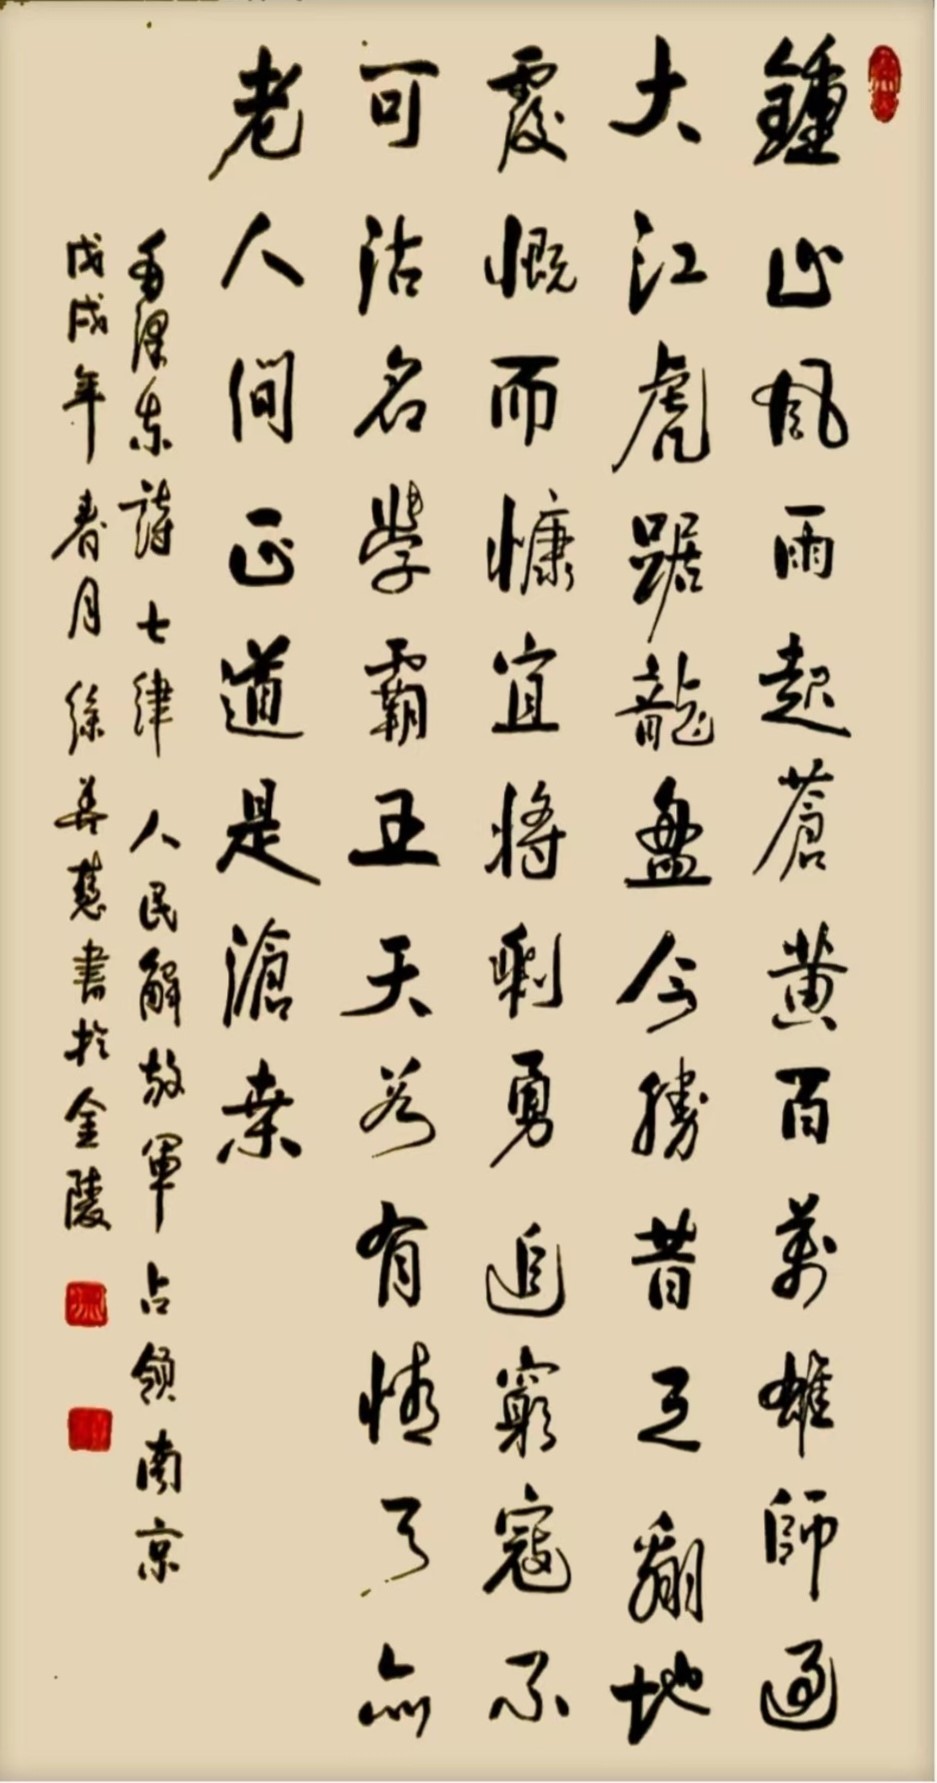 鍾山風雨起蒼黄百萬雄師過
大江虎踞龍盤今勝昔天翻地
覆慨而慷宜將剩勇追窮寇不
可沽名學霸王天若有情天亦
老人間正道是滄桑
毛澤東詩七律 人民解放軍占領南京
戊戌年春月徐慧書於金陵